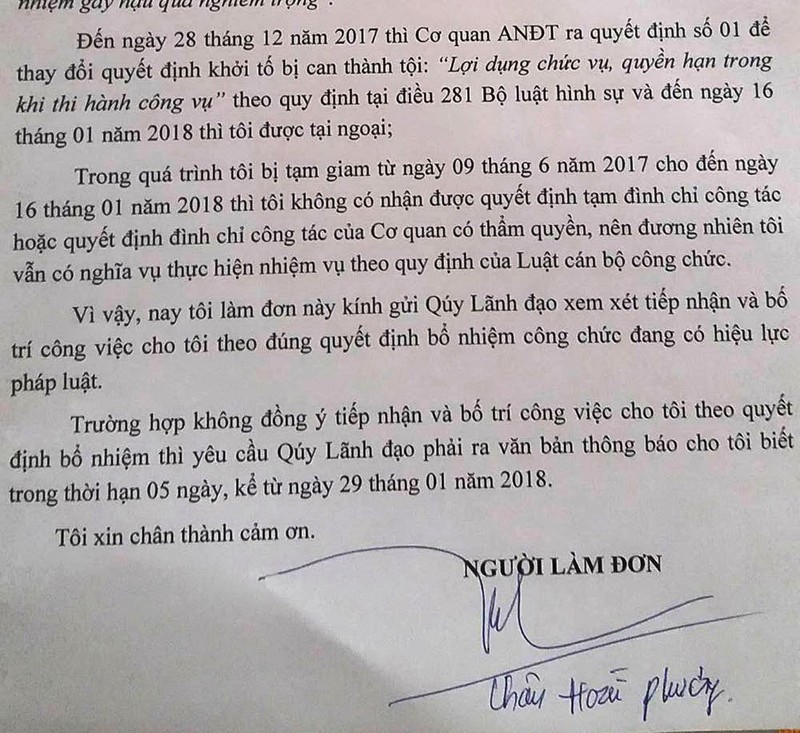 nhiệm gây hậu quả nghiêm trọng".
Đến ngày 28 tháng 12 năm 2017 thì Cơ quan ANĐT ra quyết định số 01 để
thay đổi quyết định khởi tố bị can thành tội: "Lợi dụng chức vụ, quyền hạn trong
khi thi hành công vụ" theo quy định tại điều 281 Bộ luật hình sự và đến ngày 16
tháng 01 năm 2018 thì tôi được tại ngoại;
Trong quá trình tôi bị tạm giam từ ngày 09 tháng 6 năm 2017 cho đến ngày
16 tháng 01 năm 2018 thì tôi không có nhận được quyết định tạm đình chỉ công tác
hoặc quyết định đình chỉ công tác của Cơ quan có thẩm quyền, nên đương nhiên tôi
vẫn có nghĩa vụ thực hiện nhiệm vụ theo quy định của Luật cán bộ công chức.
Vì vậy, nay tôi làm đơn này kính gửi Qúy Lãnh đạo xem xét tiếp nhận và bố
trí công việc cho tôi theo đúng quyết định bổ nhiệm công chức đang có hiệu lực
pháp luật.
Trường hợp không đồng ý tiếp nhận và bố trí công việc cho tôi theo quyết
định bổ nhiệm thì yêu cầu Qúy Lãnh đạo phải ra văn bản thông báo cho tôi biết
trong thời hạn 05 ngày, kể từ ngày 29 tháng 01 năm 2018.
Tôi xin chân thành cảm ơn.
NGƯỜI LÀM ĐƠN
Châu